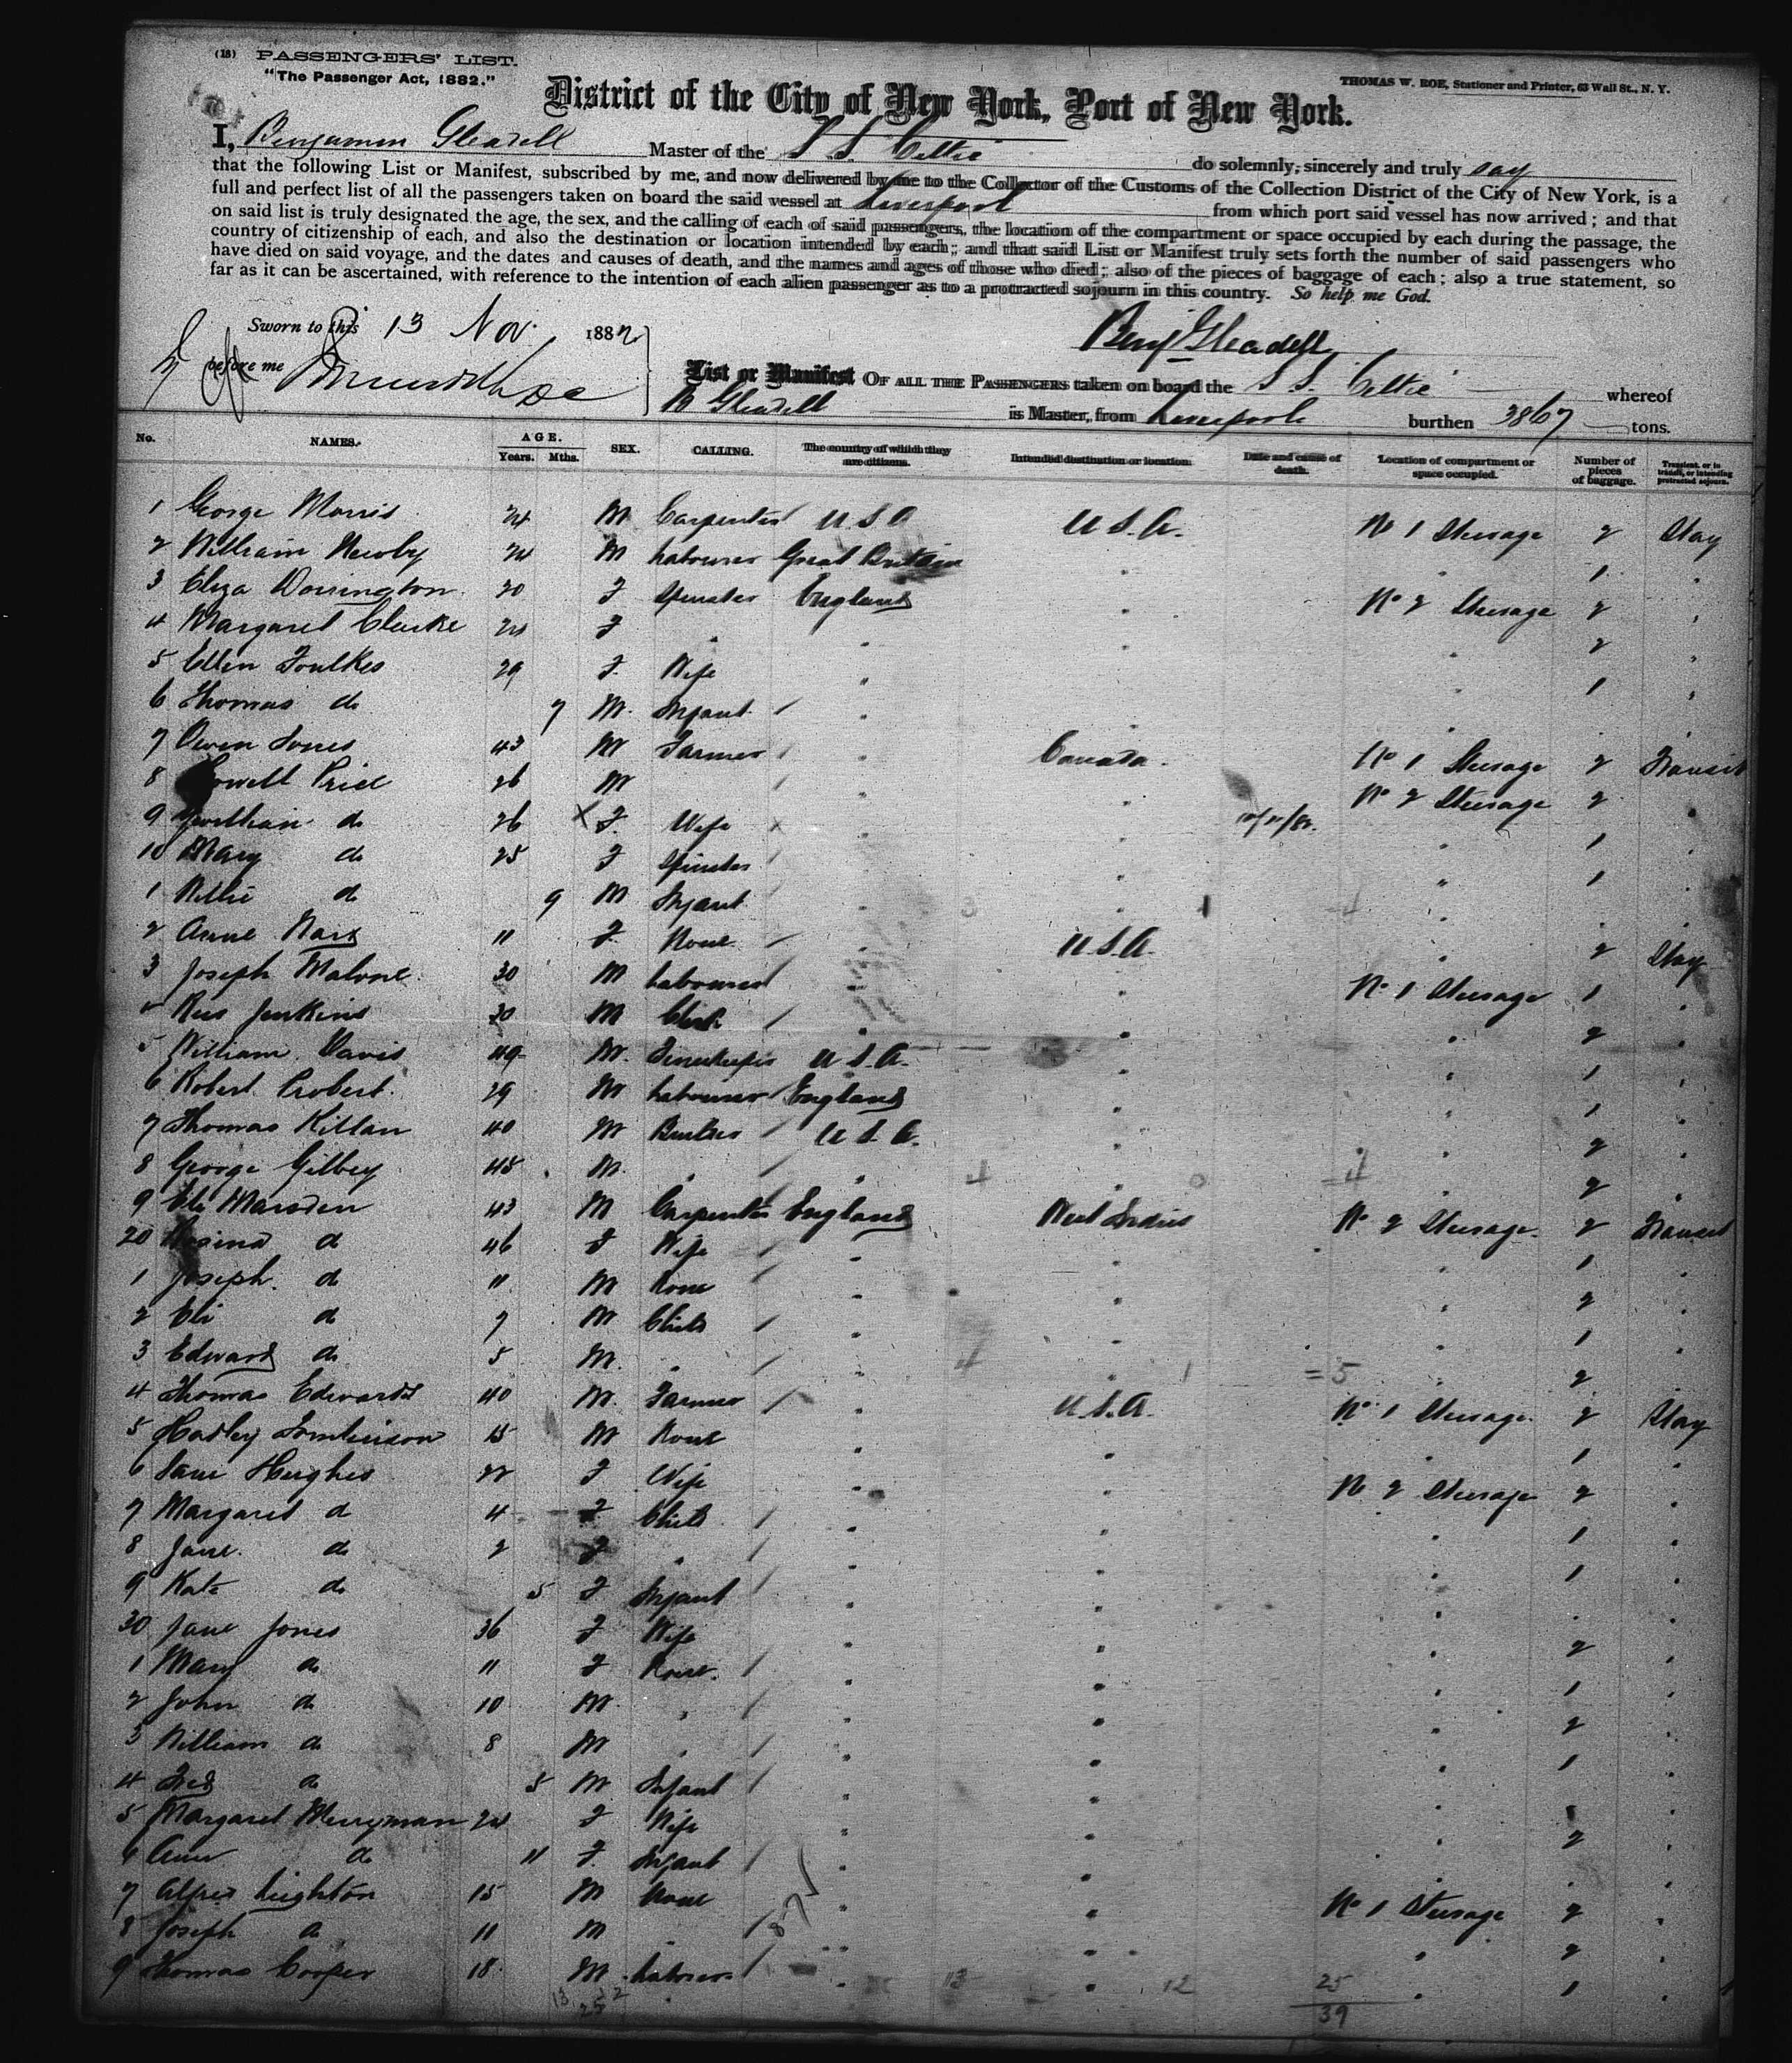 (18) PASSENGERS' LIST.
"The Passenger Act, 1882."
THOMAS W. ROE, Stationer and Printer, 63 Wall St., N. Y.
District of the City of New York, Port of New York.
I, Benjamin Gleadell Master of the S. S. Celtic do solemnly, sincerely and truly say
that the following List or Manifest, subscribed by me, and now delivered by me to the Collector of the Customs of the Collection District of the City of New York, is a
full and perfect list of all the passengers taken on board the said vessel at Liverpool from which port said vessel has now arrived; and that
on said list is truly designated the age, the sex, and the calling of each of said passengers, the location of the compartment or space occupied by each during the passage, the
country of citizenship of each, and also the destination or location intended by each; and that said List or Manifest truly sets forth the number of said passengers who
have died on said voyage, and the dates and causes of death, and the names and ages of those who died; also of the pieces of baggage of each; also a true statement, so
far as it can be ascertained, with reference to the intention of each alien passenger as to a protracted sojourn in this country. So help me God.
Sworn to this 13 Nov. 1882
Benj Gleadell
before me
List or Manifest OF ALL THE PASSENGERS taken on board the S. S. Celtic whereof
B Gleadell is Master, from Liverpool burthen 3867 tons.
No. NAMES. AGE. Years. Mths. SEX. CALLING. The country of which they are citizens. Intended destination or location. Date and cause of death. Location of compartment or space occupied. Number of pieces of baggage. Transient, or in transit, or intending protracted sojourn.
1 George Morris 24 M Carpenter U S A U.S.A. No 1 Steerage 2 Stay
2 William Newby 24 M Labourer Great Britain " " 1 "
3 Eliza Dorrington 20 F Spinster England " No 2 Steerage 2 "
4 Margaret Clarke 24 F " " " " 2 "
5 Ellen Foulkes 29 F. Wife " " 1 "
6 Thomas do 7 M. Infant " " " "
7 Owen Jones 43 M Farmer " Canada. No 1 Steerage 2 Transit
8 Powell Price 26 M " " No 2 Steerage 2 "
9 do 26 X F. Wife X " " " 1 "
10 Mary do 25 F Spinster " " " 1 "
1 Willie do 9 M Infant " " " "
2 Anne 11 F. None " U.S.A. " 2 Stay
3 Joseph Malone 30 M Labourer " " No 1 Steerage 1 "
4 Rees Jenkins 20 M " " " 2 "
5 William Davis 49 M. U.S.A. " " 1 "
6 Robert Probert 29 M Labourer England " " 1 "
7 Thomas Killan 40 M U.S.A. " " 2 "
8 George Gilbey 45 M " " " " 2 "
9 Eli Marsden 43 M Carpenter England West Indies No 2 Steerage 2 Transit
20 do 46 F Wife " " " 1 "
1 Joseph do 11 M None " " " 2 "
2 Eli do 7 M Child " " " 1 "
3 Edward do 5 M. " " " " 2 "
4 Thomas Edwards 40 M. Farmer " U.S.A. No 1 Steerage 2 Stay
5 Hadley Tomlinson 15 M None " " " 1 "
6 Jane Hughes 22 F Wife " No 2 Steerage 2 "
7 Margaret do 4 F Child " " " 1 "
8 Jane do 2 F " " " " 1 "
9 Kate do 5 F Infant " " " "
30 Jane Jones 36 F Wife " " " 2 "
1 Mary do 11 F None " " " 1 "
2 John do 10 M " " " " 2 "
3 William do 8 M " " " " 1 "
4 Fred do 5 M Infant " " " "
5 Margaret Merryman 24 F Wife " " " 2 "
6 do 11 F. Infant " " " "
7 Alfred Leighton 15 M None " " No 1 Steerage 2 "
8 Joseph do 11 M " " " " 2 "
9 Thomas Cooper 18 M Labourer " " " 1 "
13 12 25
13 12 25
39